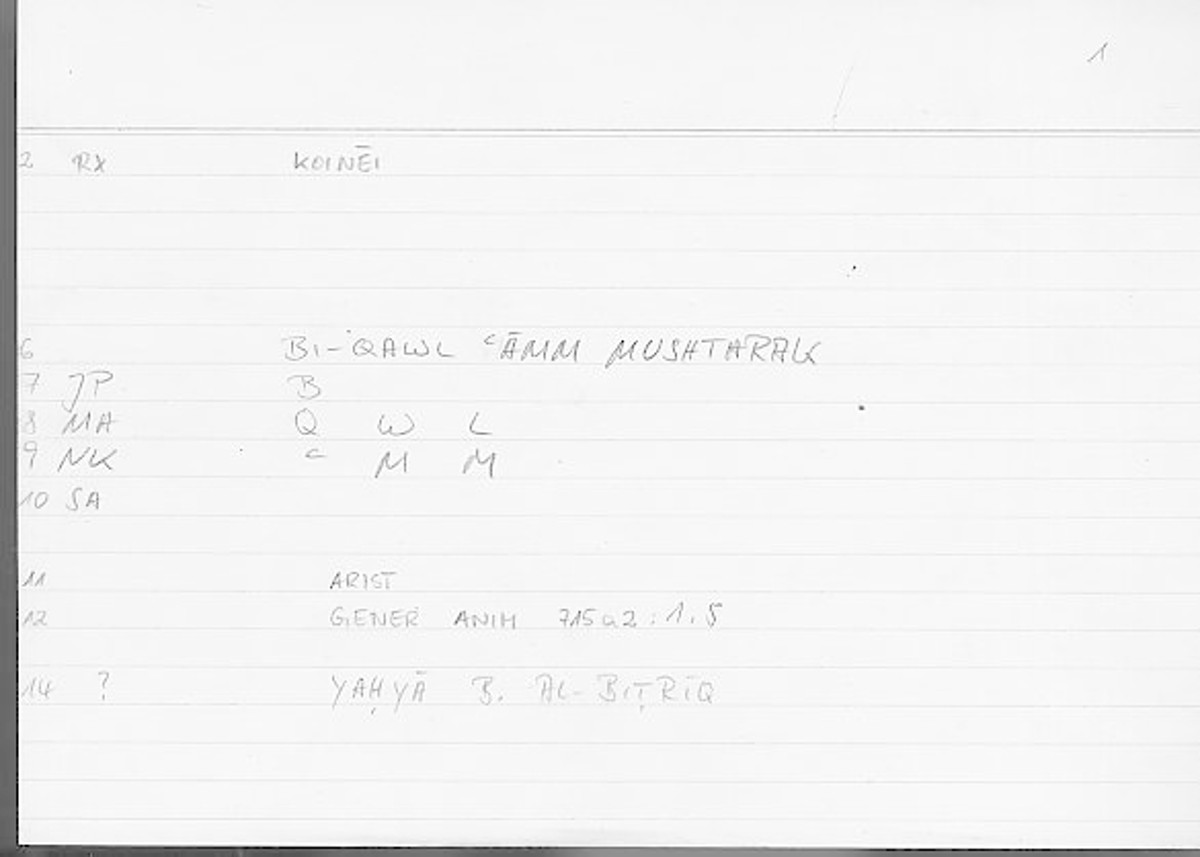 1
2 RX KOINĒI
6 BI-QAWL ʿĀMM MUSHTARAK
7 JP B
8 MA Q W L
9 NK ʿ M M
10 SA
11 ARIST
12 GENER ANIM 715a2:1.5
14 ? YAḤYĀ B. AL-BIṬRĪQ